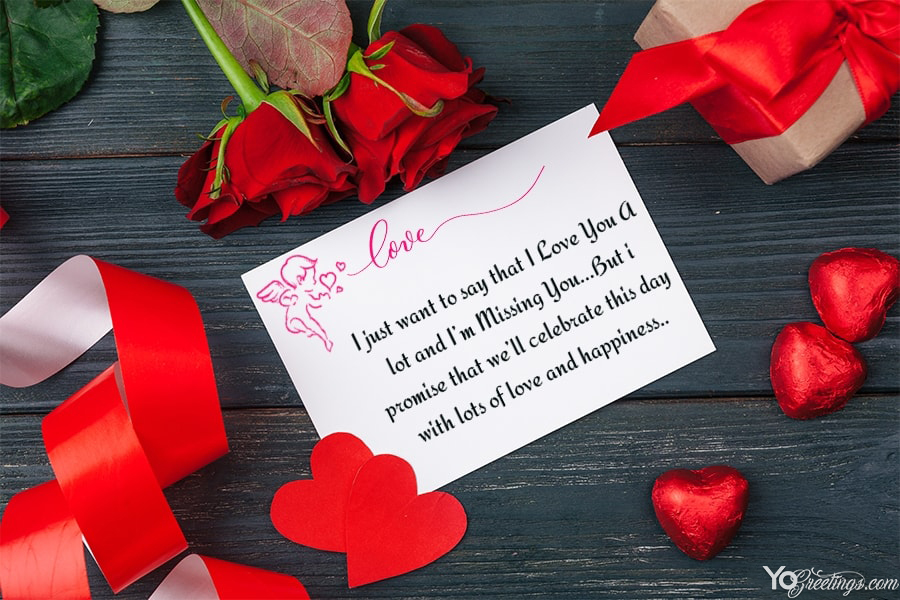 love
I just want to say that I Love You A
lot and I'm Missing You...But i
promise that we'll celebrate this day
with lots of love and happiness..
YoGreetings.com